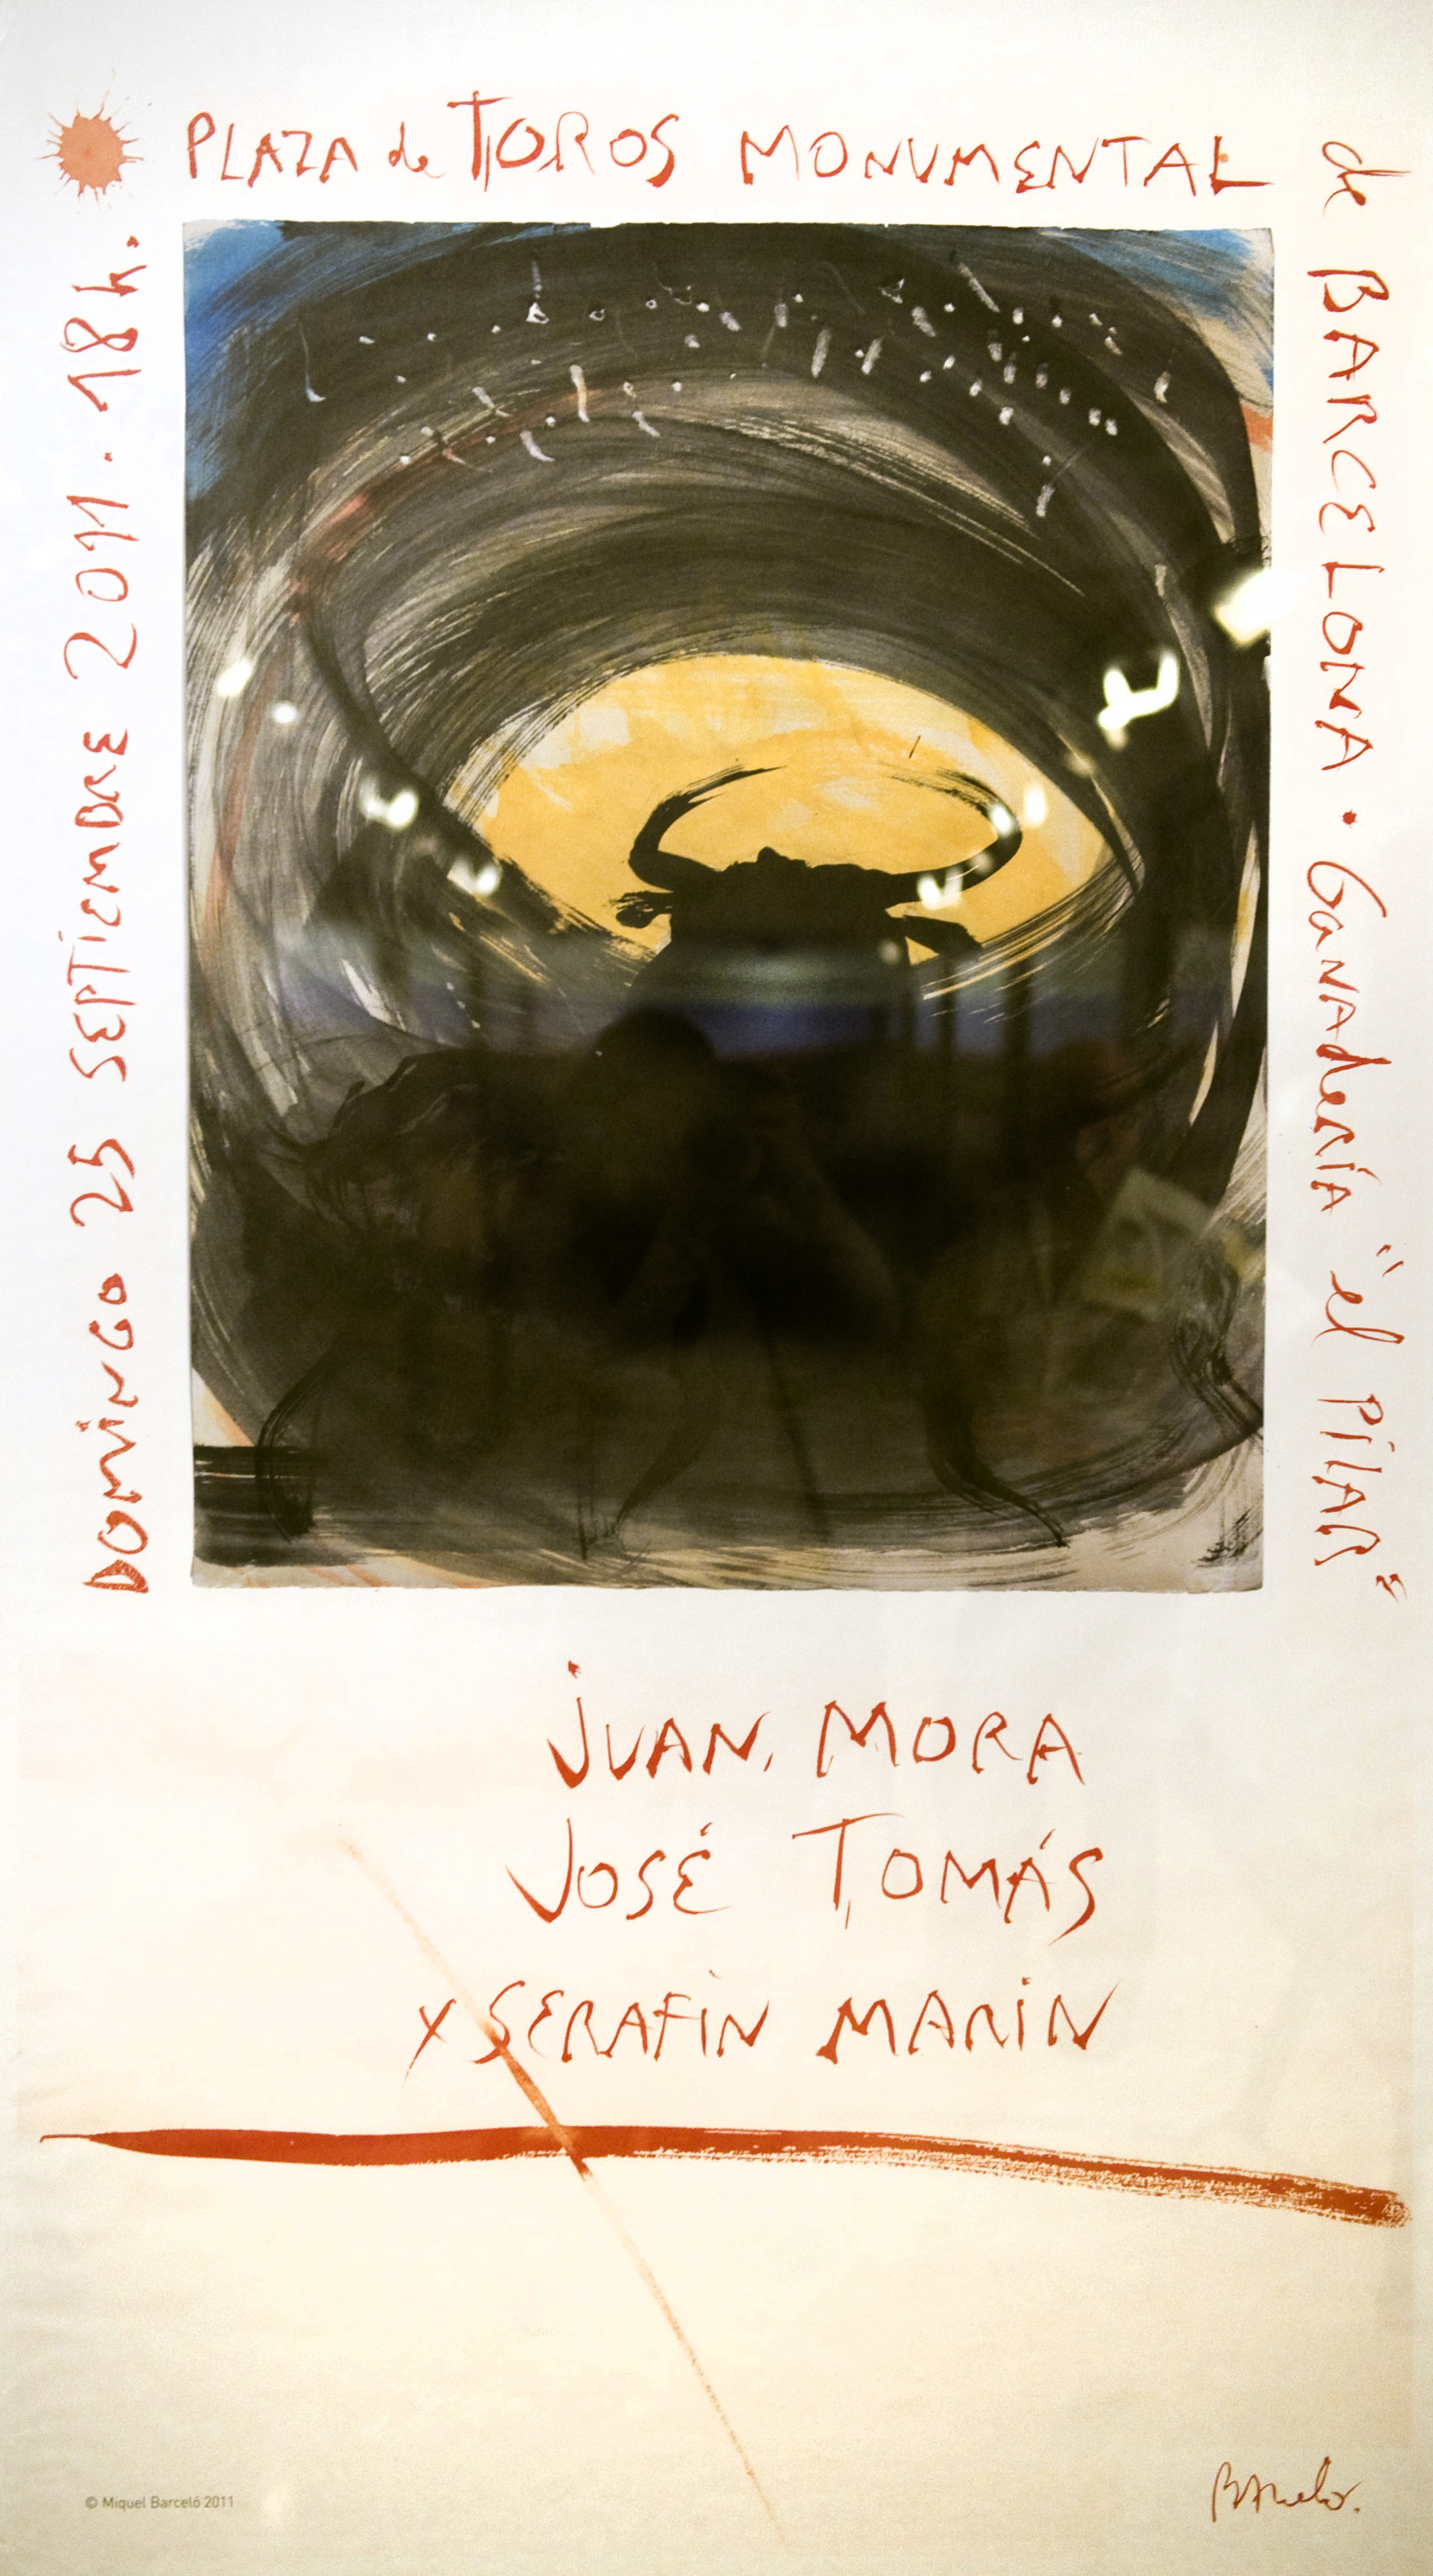 PLAZA de TOROS MONUMENTAL
de BARCELONA · GANADERÍA "el PILAR"
DOMINGO 25 SEPTIEMBRE 2011 · 18 h.
JUAN MORA
JOSÉ TOMÁS
Y SERAFÍN MARÍN
© Miquel Barceló 2011
BARCELO.